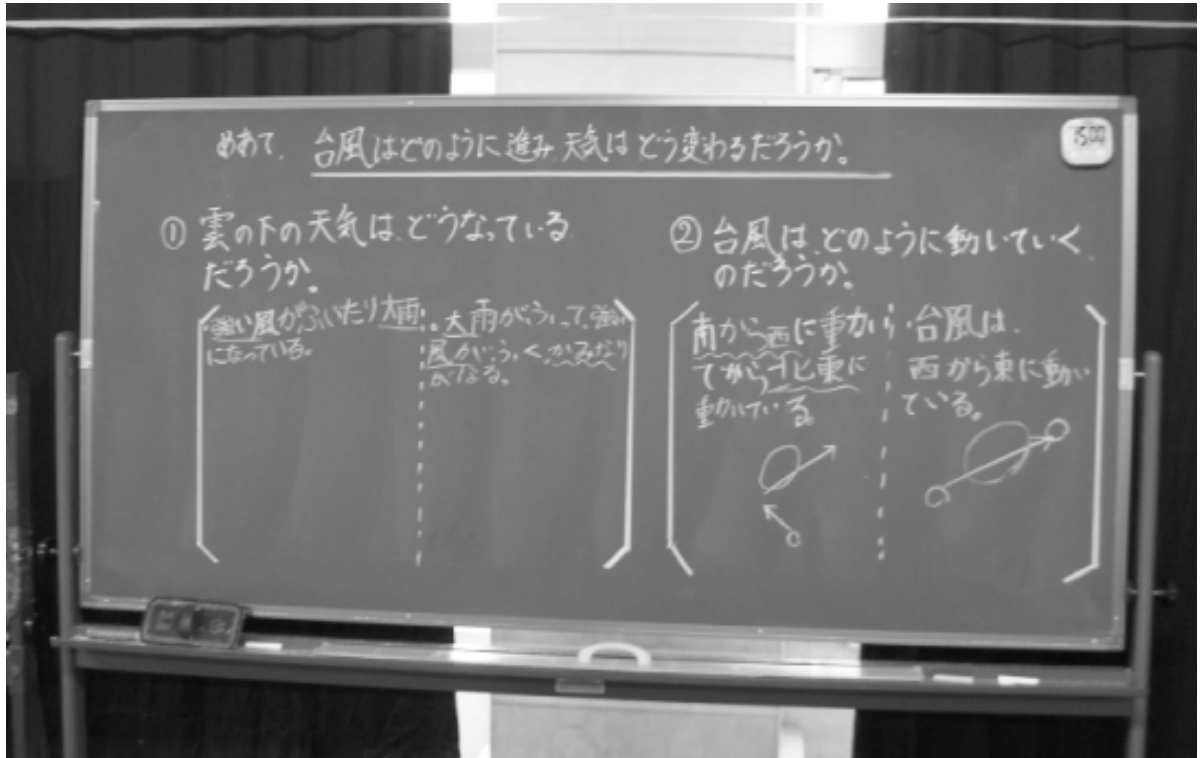 めあて. 台風はどのように進み、天気はどう変わるだろうか。
15:00
① 雲の下の天気は、どうなっている
だろうか。
・強い風がふいたり大雨
になっている。
・大雨がふって、強い
風がふく、かみなり
がなる。
② 台風は、どのように動いていく
のだろうか。
南から西に動い
てから北東に
動いている。
・台風は、
西から東に動い
ている。